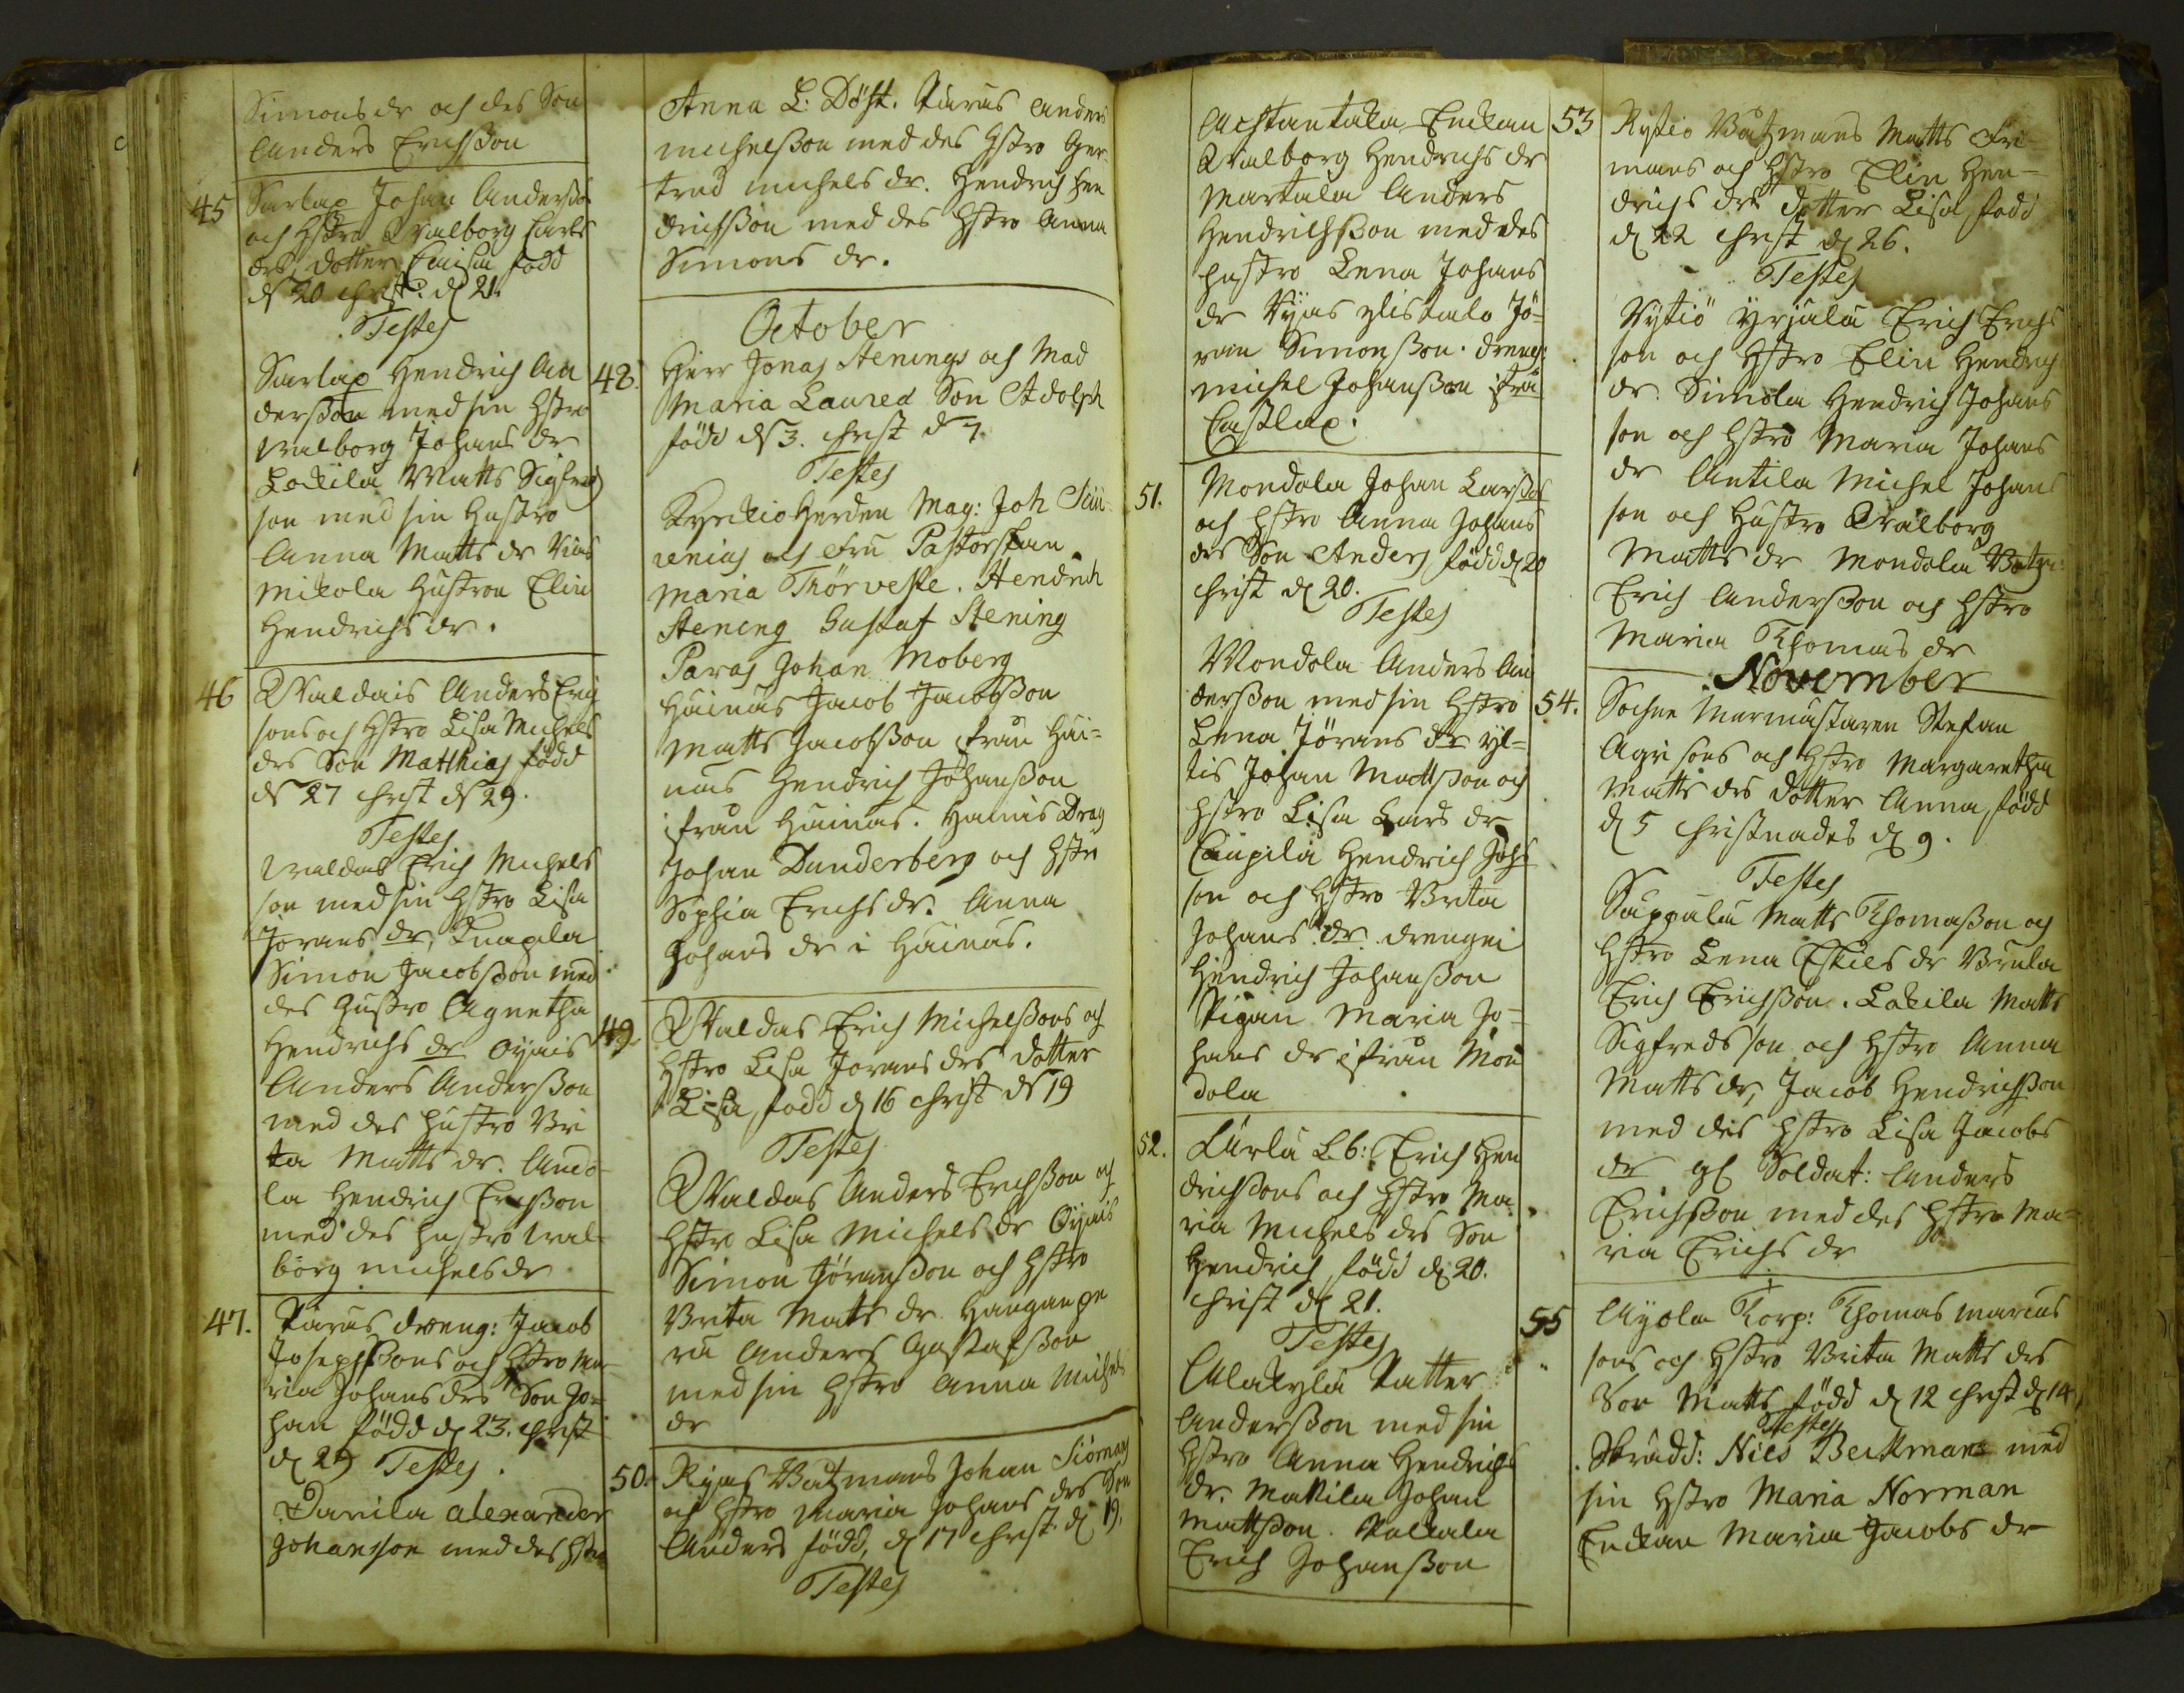 Simons dr och des Son
Anders Erichsson
45 Sarlax Johan Anderss
och Hstro Walborg Carls
drs, dotter Caisa född
d 20 christ: d 21.
Testes
Sarlax Hendrich An
dersson med sin Hstro
Walborg Johans dr
Lockila Matts Sigfreds
son med sin Hustro
Anna Matts dr
Mikola Hustron Elin
Hendrichs dr.
46 Waldais Anders Erich
sons och Hstro Lisa Michels
drs Son Matthias född
d 27 christ d 29.
Testes
Waldas Erich Michels
son med sin Hstro Lisa
Jorans dr, Knapila
Simon Jacobsson med
des Hustro Agnetha
Hendrichs dr Oijais
Anders Andersson
med des Hustro Bri
ta Matts dr.
la Hendrich Ericsson
med des Hustro Wal
borg Michels dr
47. Parus dreng: Jacob
Josephssons och Hstro Ma
ria Johans drs Son Jo=
han född d 23. christ
d 29 Testes
Davila Alexander
Johansson med des Hstro
Anna L: Döht. Parus Anders
Michelsson med des Hstro Ger
trud Michels dr. Hendrich Hen
drichsson med des Hstro Anna
Simons dr.
October
48. Herr Jonas Stenings och Mad
Maria Laured Son Adolph
född d 3. christ d 7.
Testes
Kyrckio Herden Mag: Joh
enius och Fru Pastorskan
Maria Thörveste. Hendrich
Stening Gustaf Stening
Paras Johan Moberg
Hainas Jacob Jacobsson
Matts Jacobsson från Hai=
nas Hendrich Johansson
ifrån Hainas. Hainas Drag
Johan Dunderberg och Hstr
Sophia Erichs dr. Anna
Johans dr i Hainas.
49. Waldas Erich Michelssons och
Hstro Lisa Jorans drs dotter
Lisa, född d 16 christ d 19
Testes
Waldas Anders Erichsson och
Hstro Lisa Michels dr Oijais
Simon Göransson och Hstro
Brita Matts dr
Anders Gustafsson
med sin Hstro Anna Michels
dr
50. Rijas Båtzmans Johan Siömans
och Hstro Maria Johans drs Son
Anders född, d 17 christ d 19.
Testes
Enckan
Walborg Hendrichs dr
Martala Anders
Hendrichsson med des
Hustro Lena Johans
dr Jö=
ran Simonsson. dreng:
Michel Johansson ifrå
Castlax.
51. Mondola Johan Larssons
och Hstro Anna Johans
drs Son Anders född d 20
christ d 20.
Testes
Mondola Anders An
dersson med sin Hstro
Lena Jörans dr yl=
tis Johan Mattsson och
Hstro Lisa Lars dr
Caupila Hendrich Johs
son och Hstro Brita
Johans dr drengen
Hendrich Johansson
Pigan Maria Jo=
hans dr ifrån Mon
dola
52. Lb: Erich Hen
drichssons och Hstro Ma
ria Michels drs Son
Hendrich, född d 20.
christ d 21.
Testes
Alakylä Patter
Andersson med sin
Hstro Anna Hendrichs
dr. Mattila Johan
Mattsson.
Erich Johansson
53 Rytio Båtzmans Matts
mans och Hstro Elin Hen=
drichs drs dotter Lisa, född
d 22 christ d 26.
Testes
Rytiö Yrjälä Erich Erichs
son och Hstro Elin Hendrichs
dr. Simola Hendrich Johans
son och Hstro Maria Johans
dr Antila Michel Johans
son och Hustro Walborg
Matts dr Mondola
Erich Andersson och Hstro
Maria Thomas dr
November
54. Sochne Murmästaren Stefan
sons och Hstro Margaretha
Matts drs dotter Anna, född
d 5 christnades d 9.
Testes
Matts Thomasson och
Hstro Lena Eskils dr
Erich Erichsson. Lockila Matts
Sigfreds son och Hstro Anna
Matts dr, Jacob Hendrichsson
med des Hstro Lisa Jacobs
dr Soldat: Anders
Erichsson med des Hstro Ma=
ria Erichs dr
55 Torp: Thomas Marcus
sons och Hstro Brita Matts drs
Son Matts född d 12 christ d 14
Testes
Skrädd: Nils Beckman med
sin Hstro Maria Norman
Enckan Maria Jacobs dr